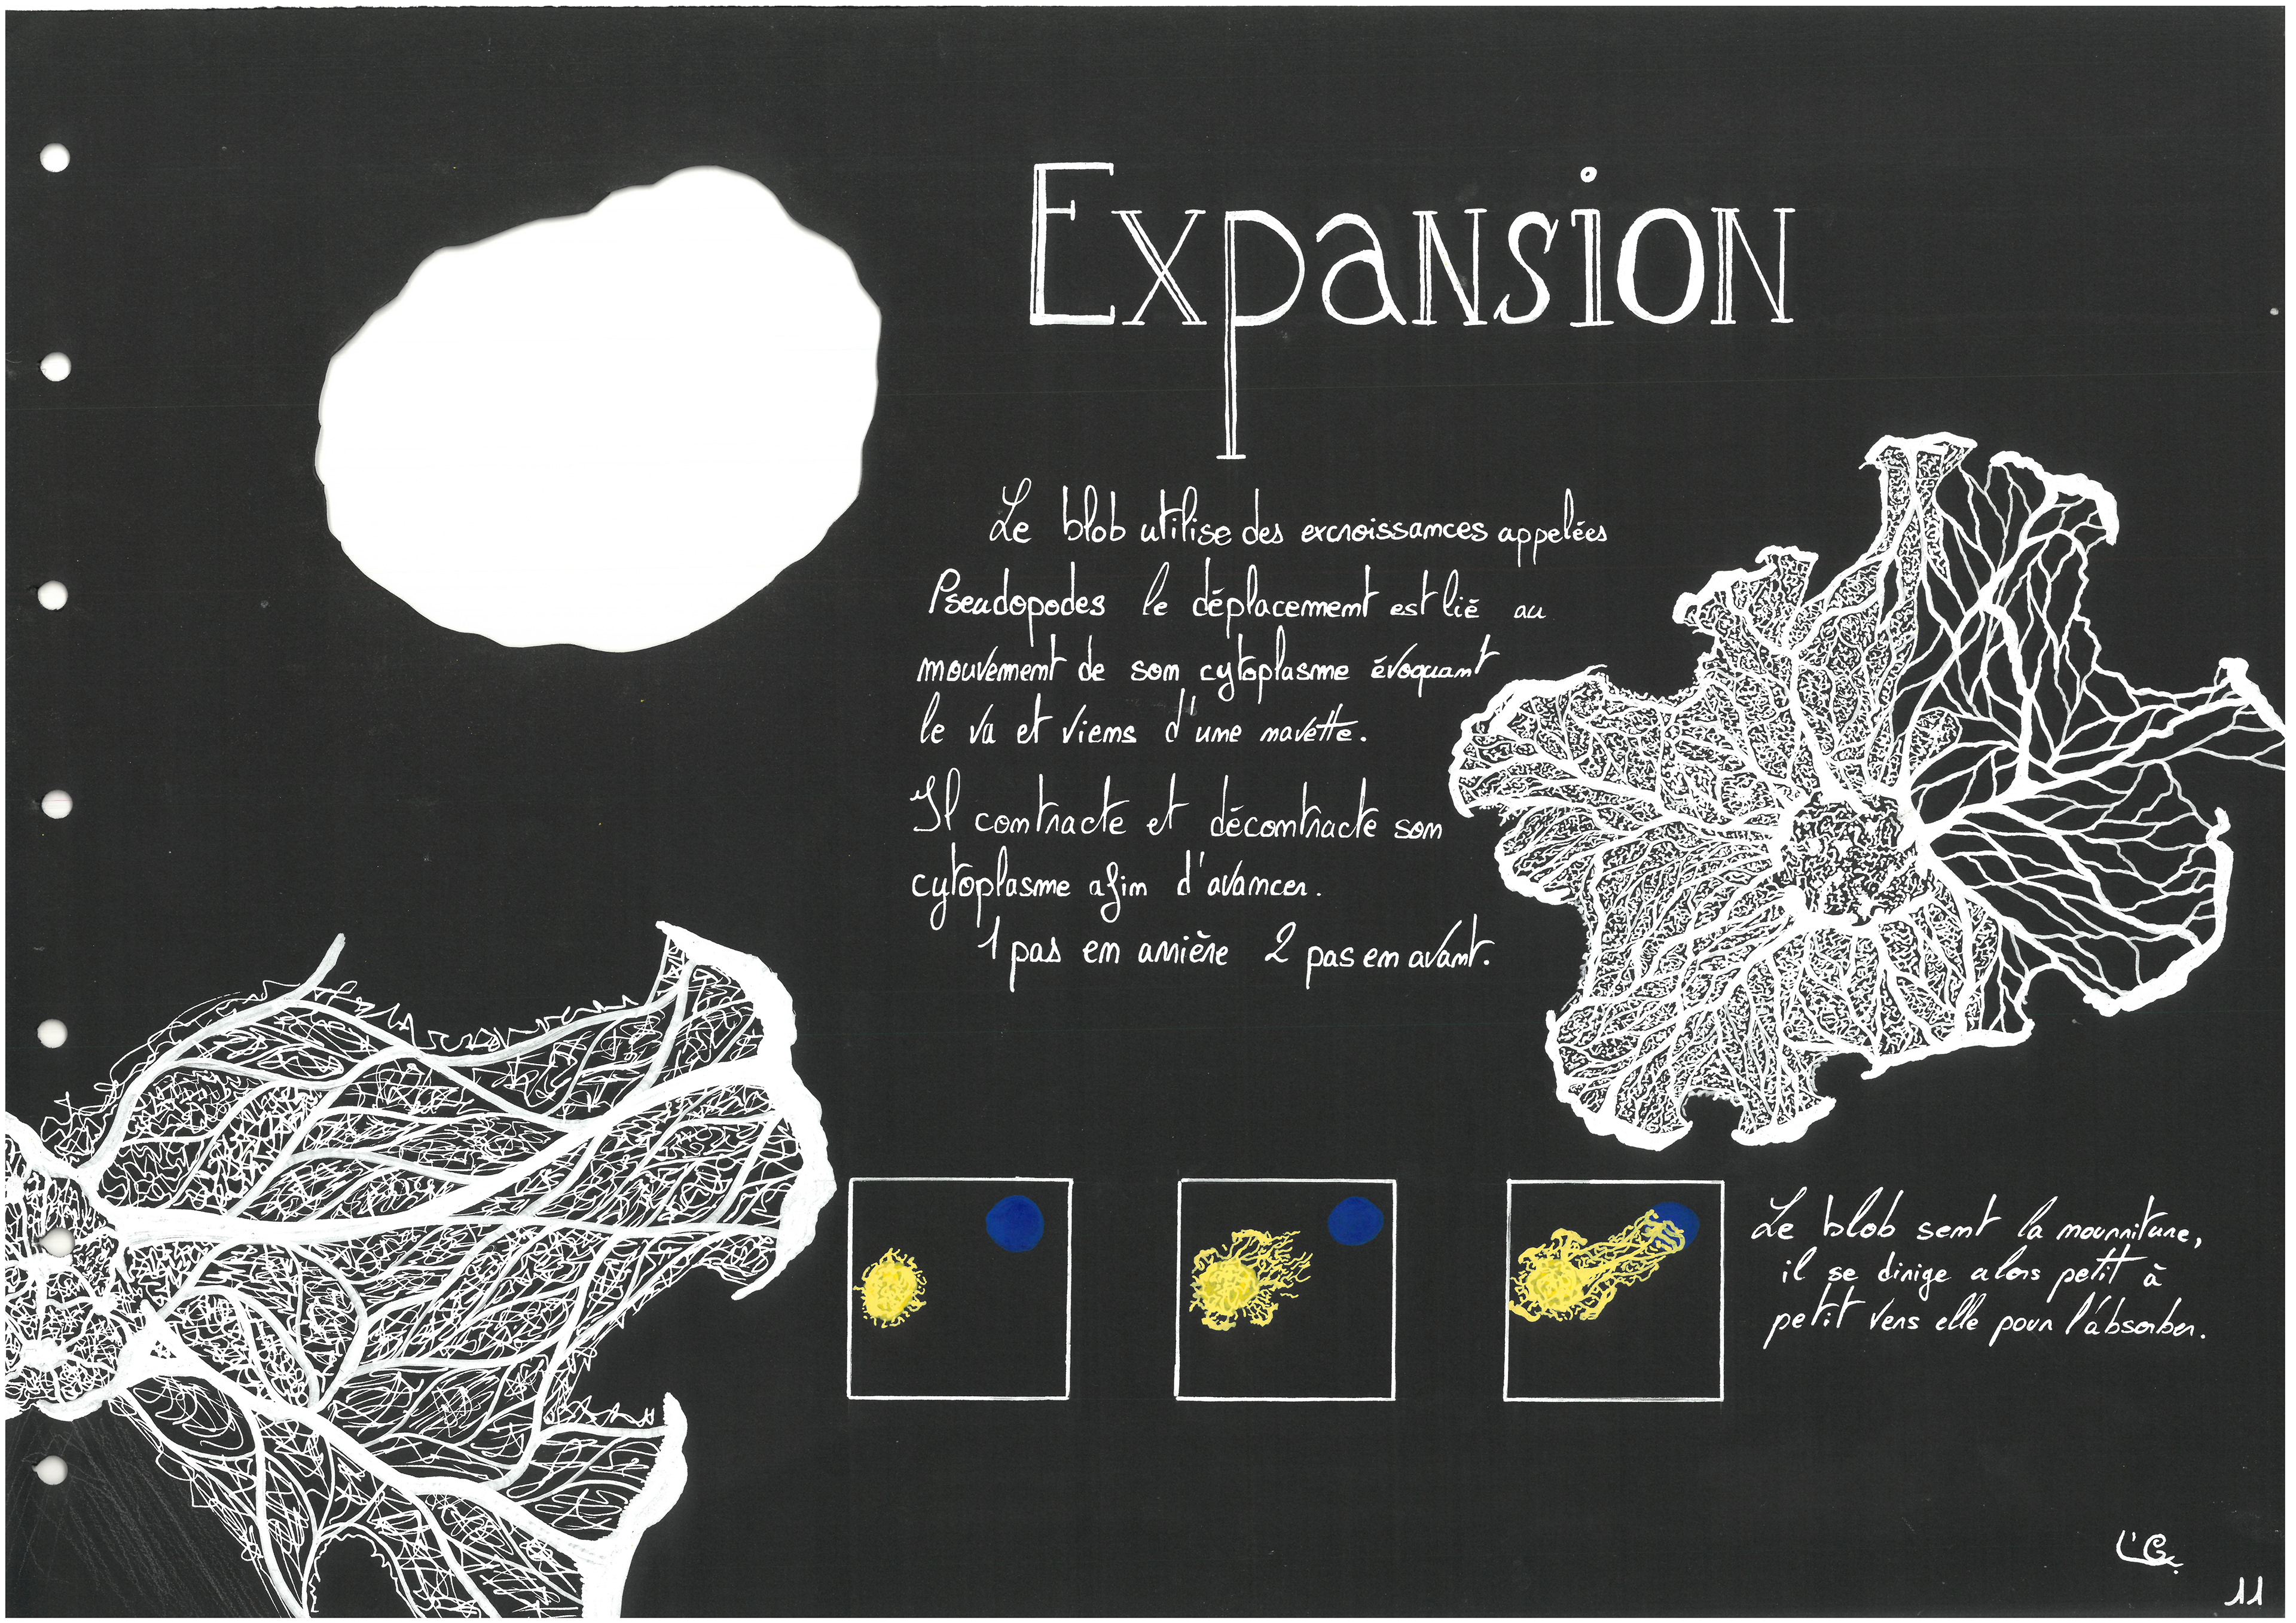 Expansion
Le blob utilise des excroissances appelées
Pseudopodes le déplacement est lié au
mouvement de son cytoplasme évoquant
le va et viens d'une navette.
Il contracte et décontracte son
cytoplasme afin d'avancer.
1 pas en arrière 2 pas en avant.
Le blob sent la nourriture,
il se dirige alors petit à
petit vers elle pour l'absorber.
11